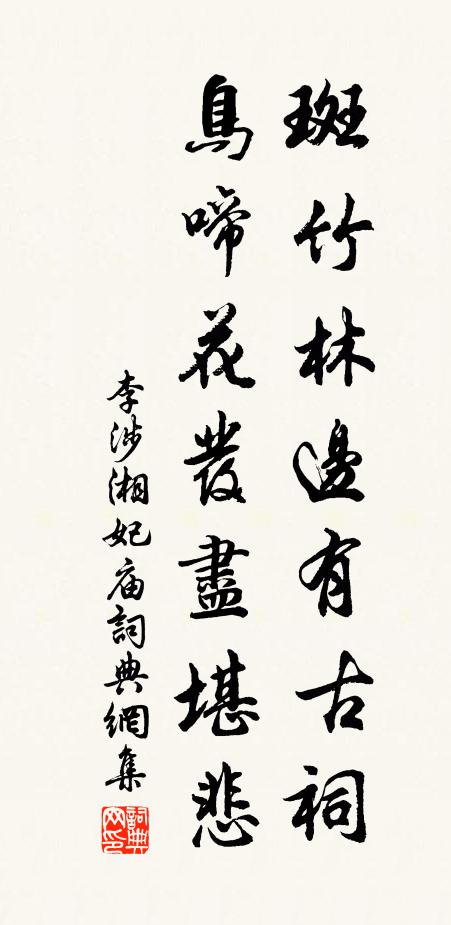 斑竹林邊有古祠
鳥啼花發盡堪悲
李涉湘妃庙詞典網集
詞典網印